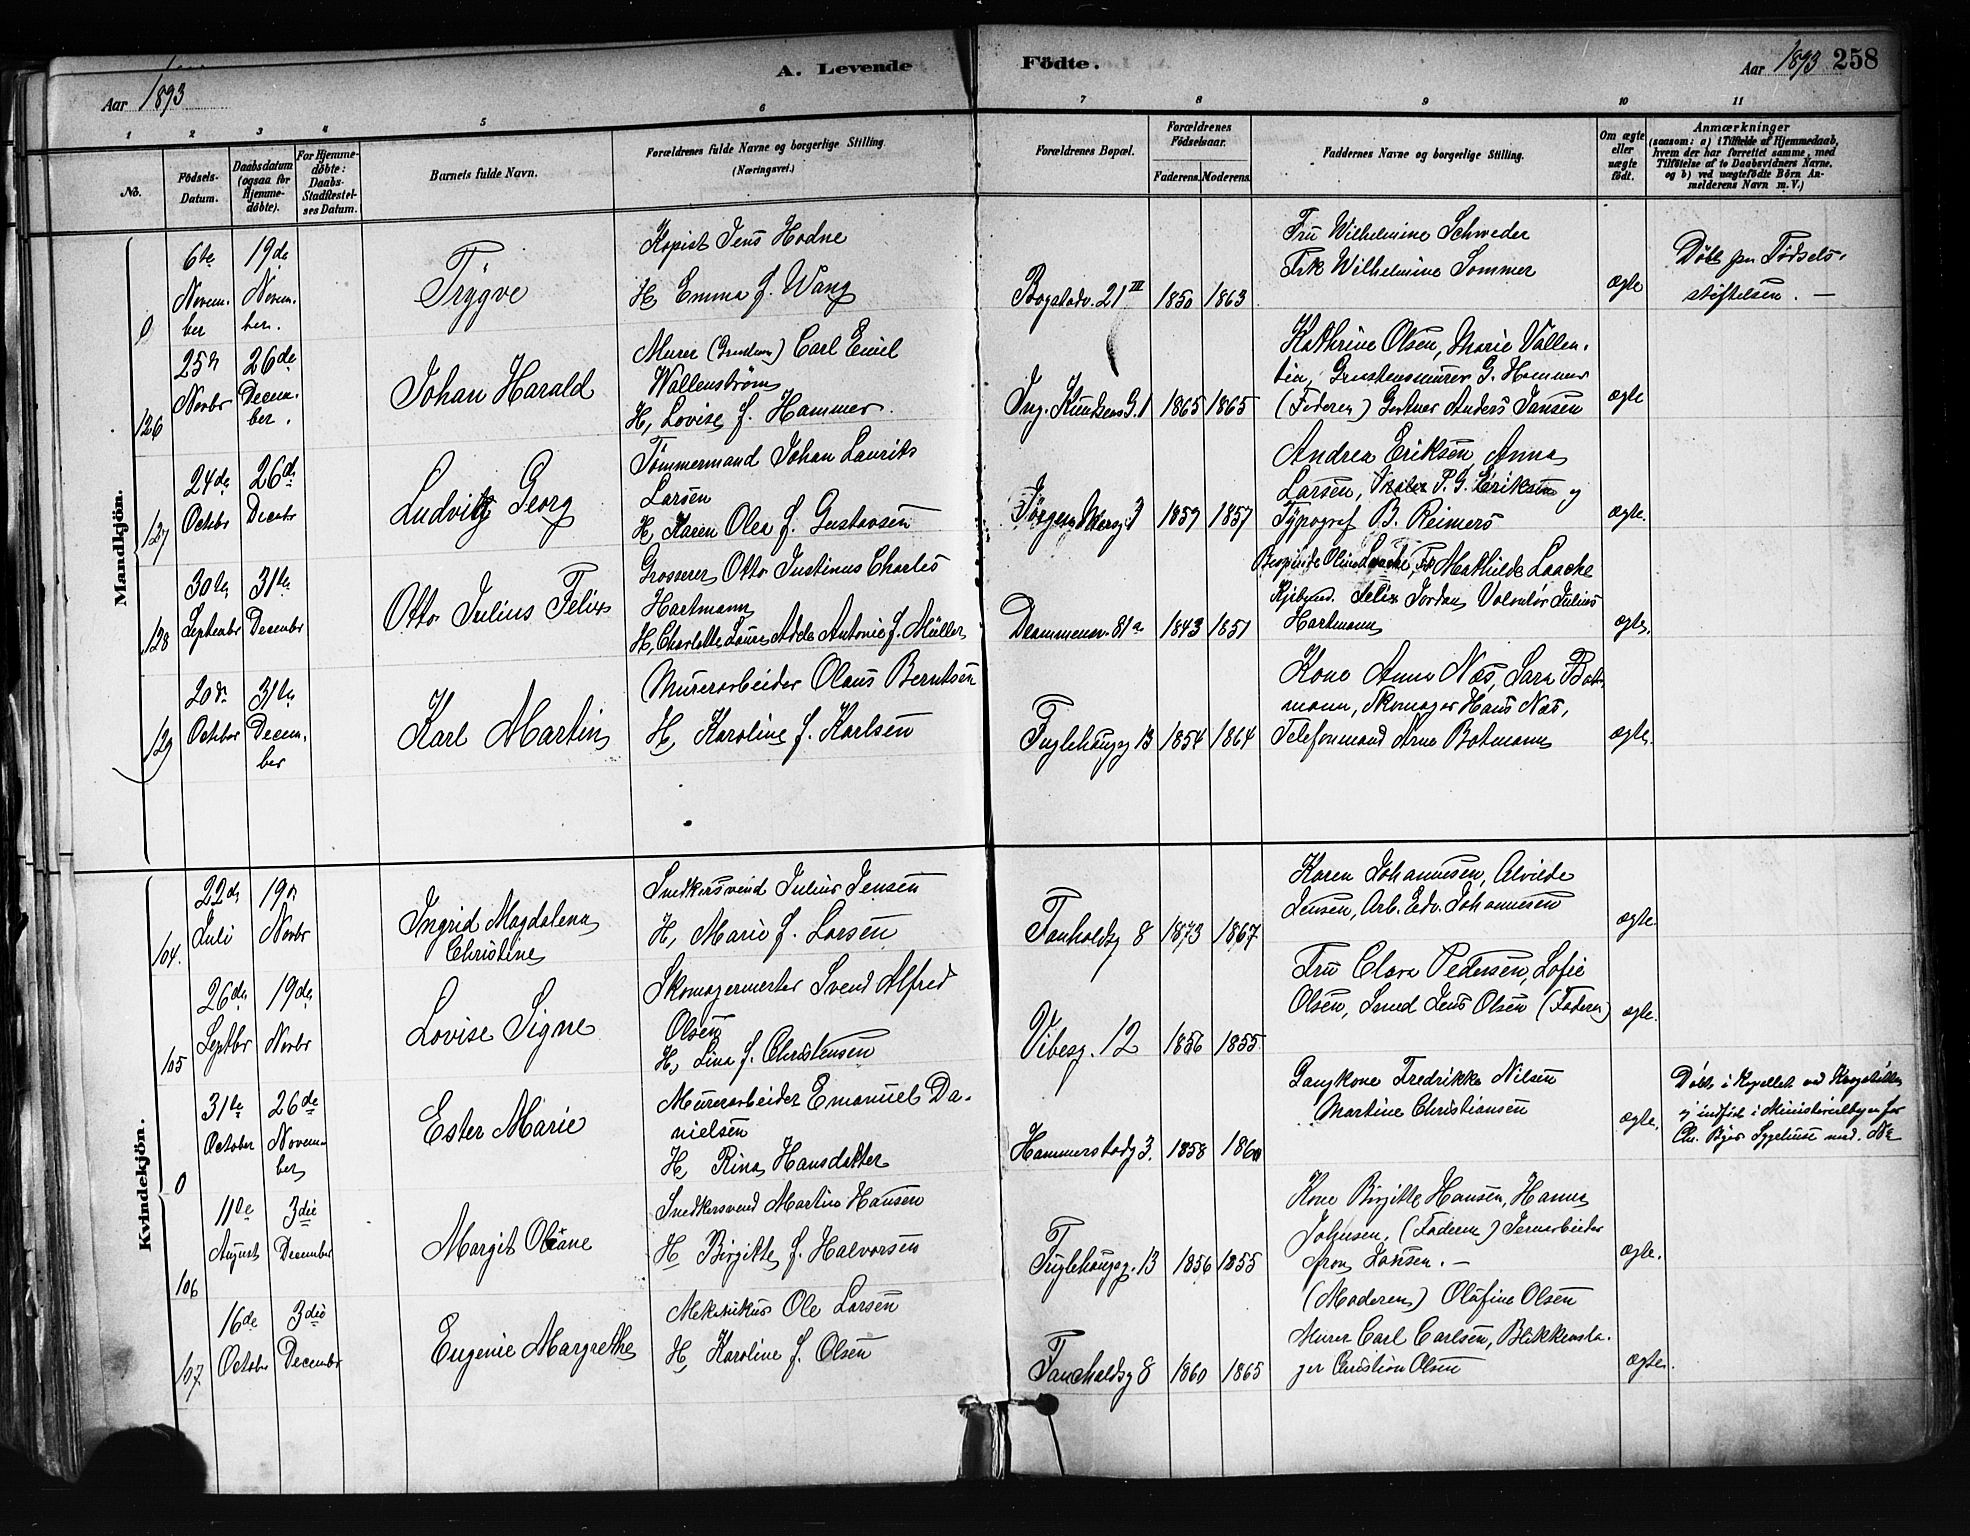 A. Levende Födte.
Aar 1893
Aar 1893 258
1 2 3 4 5 6 7 8 9 10 11
No.
Födsels-
Datum.
Daabsdatum
(ogsaa for
Hjemme-
døbte).
For Hjemme-
döbte:
Daabs-
Stadfæstel-
ses Datum.
Barnets fulde Navn.
Forældrenes fulde Navne og borgerlige Stilling
(Næringsvei.)
Forældrenes Bopæl.
Forældrenes
Födselsaar.
Faderens. Moderens.
Faddernes Navne og borgerlige Stilling.
Om ægte
eller
uægte
födt.
Anmærkninger
(saasom: a) i Tilfælde af Hjemmedaab,
hvem der har forrettet samme, med
Tilföielse af to Daabsvidners Navne.
og b) ved uægtefödte Börn An-
melderens Navn m. V.)
Mandkjön.
0
6te
Novem-
ber
19de
Novem-
ber.
Trygve
Kopist Jens Hodne
H, Emma f. Wang
Bogstadv. 21 III
1850 1863
Fru Wilhelmine Schweder
Frk Wilhelmine Sommer
ægte
Døbt paa Fødsels-
stiftelsen. —
126
25de
Novbr
26de
Decem-
ber.
Johan Harald
Murer Carl Emil
Wallenstrøm
H, Lovise f. Hammer.
Ing. Knudsens G. 1
1865 1865
Kathrine Olsen, Marie Vallen-
tin, G. Hammer
(Faderen) Gartner Anders Jansen
ægte
127
24de
Octbr
26de
Decbr
Ludvig Georg
Tømmermand Johan Laurits
Larsen
H, Karen Olea f. Gustavsen
3
1859 1857
Andrea Eriksen, Anna
Larsen, P. G. Eriksen og
Typograf B. Reimers
ægte.
128
30te
Septembr
31te
Decembr
Otto Julius Felix
Grosserer Otto Justinus Charles
Hartmann
H, Charlotte Laura Adele Antonie f. Müller
Drammensv. 81a
1843 1851
Mathilde Laache
Felix Jordan, Volontør Julius
Hartmann
ægte.
129
20de
Octbr
31te
Decem-
ber
Karl Martin
Murerarbeider Olaus Berntsen
H, Karoline f. Karlsen
Fuglehaugg 13
1854 1864
Kone Anna Næs, Sara Bot-
mann, Skomager Hans Næs,
Telefonmand Arne Botmann
ægte.
Kvindekjön.
104.
22de
Juli
19de
Novbr
Ingrid Magdalena
Christine
Snedkersvend Julius Jensen
H, Marie f. Larsen
8
1873 1867
Karen Johannesen, Alvilde
Jensen, Arb. Edv. Johannesen
ægte.
105
26de
Septbr
19de
Novbr
Lovise Signe
Skomagermester Svend Alfred
Olsen
H, Lina f. Christensen
Vibesg. 12
1856 1855
Fru Clara Pedersen, Sofie
Olsen, Smed Jens Olsen (Faderen)
ægte.
0
31te
October
26de
Novem-
ber
Ester Marie
Murerarbeider Emanuel Da-
nielsen
H, Rina Hansdatter
Hammerstadg 3.
1858 1860
Gangkone Fredrikke Nilsen
Martine Christiansen
ægte.
Døbt i Kapellet ved
og indført i Ministerialbogen for
Chr. Byes Sygehuse
106
11te
August
3die
December
Margit Oliane
Snedkersvend Martin Hansen
H Birgitte f. Halvorsen
Fuglehaugsg. 13
1856 1855
Kone Birgitte Hansen, Hanna
Johnsen, (Faderen) Jernarbeider
Aron Larsen. —
ægte.
107
16de
Octobr
3die
Decembr
Eugenie Margrethe
Mekanikus Ole Larsen
H, Karoline f. Olsen
8
1860 1865
(Moderen) Olafine Olsen
Murer Carl Carlsen, Blikkensla-
ger Christian Olsen
ægte.